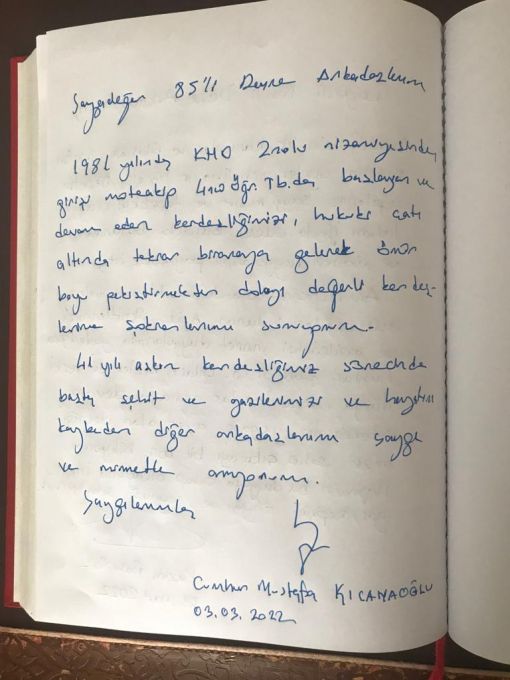 Saygıdeğer 85'li Devre Arkadaşlarım
1981 yılında KHO 2nolu nizamiyesinden
girişi müteakip 4ncü Öğr. Tb.da başlayan ve
devam eden kardeşliğimizi, hukuki çatı
altında tekrar biraraya gelerek ömür
boyu pekiştirmekten dolayı değerli kardeş-
lerime şükranlarımı sunuyorum.
41 yılı aşkın kardeşliğimiz sürecinde
başta şehit ve gazilerimizi ve hayatını
kaybeden diğer arkadaşlarımı saygı
ve minnetle anıyorum.
Saygılarımla
Cumhur Mustafa KICAHAOĞLU
03.03.2022